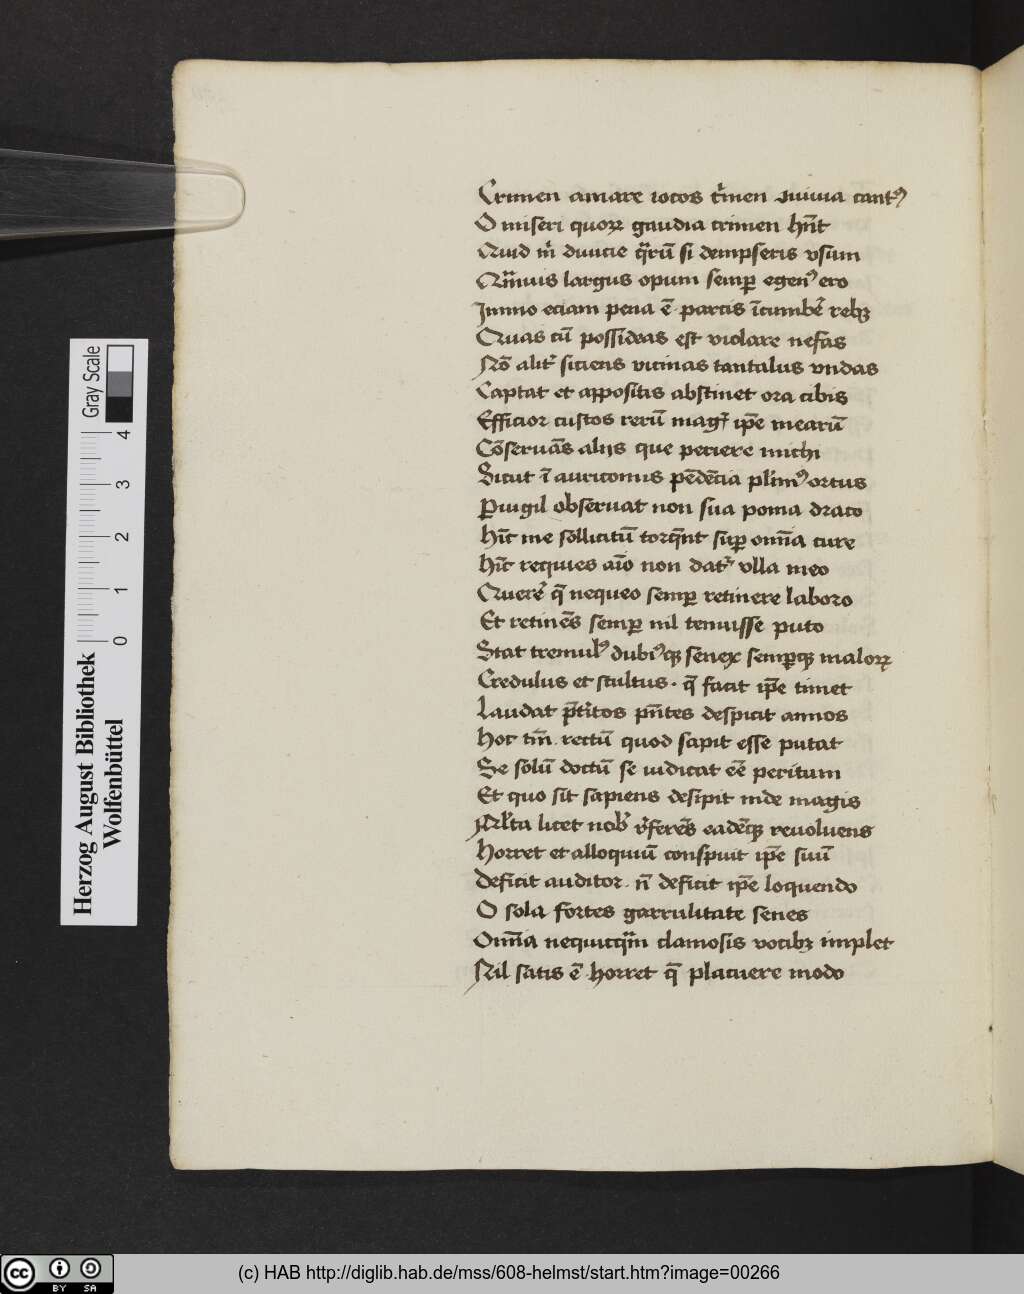 Crimen amare iocos cⁱmen ↄuiuia cantꝰ
O miseri quoꝝ gaudia crimen hn̄t
Quid mⁱ diuicie q̄rū si dempseris vsum
Qm̄uis largus opum semꝑ egenꝰ ero
Jmmo eciam pena ē partis īcumbe᷑ rebꝫ
Quas cū possideas est violare nefas
Nō alit᷑ siciens vicinas tantalus vndas
Captat et appositis abstinet ora cibis
Efficior custos rerū mag᷑ ip̄e mearū
Cōseruās alijs que periere michi
Sicut ī auricomis pēdēcia plimꝰ ortus
Ꝑuigil obseruat non sua poma draco
Hīc me sollicitū torq̄nt suꝑ om̄ia cure
Hīc requies aīo non dat᷑ vlla meo
Querē q̄ nequeo semꝑ retinere laboro
Et retinēs semꝑ nil tenuisse puto
Stat tremulꝰ dubiꝰqꝫ senex semꝑqꝫ maloꝝ
Credulus et stultus · q̄ facit ip̄e timet
Laudat p̄tⁱtos pn̄tes despicit annos
Hoc tm̄ rectū quod sapit esse putat
Se solū doctū se iudicat eē peritum
Et quo sit sapiens desipit inde magis
Ml̄ta licet nobꝭ ᷑feręs eadēqꝫ reuoluens
Horret et alloquiū conspuit ip̄e suū
Deficit auditor · n̄ deficit ip̄e loquendo
O sola fortes garrulitate senes
Om̄ia nequicqm̄ clamosis vocibꝫ implet
Nil satis ē horret q̄ placuere modo
Gray Scale
0 1 2 3 4
Herzog August Bibliothek
Wolfenbüttel
cc BY SA
(c) HAB http://diglib.hab.de/mss/608-helmst/start.htm?image=00266